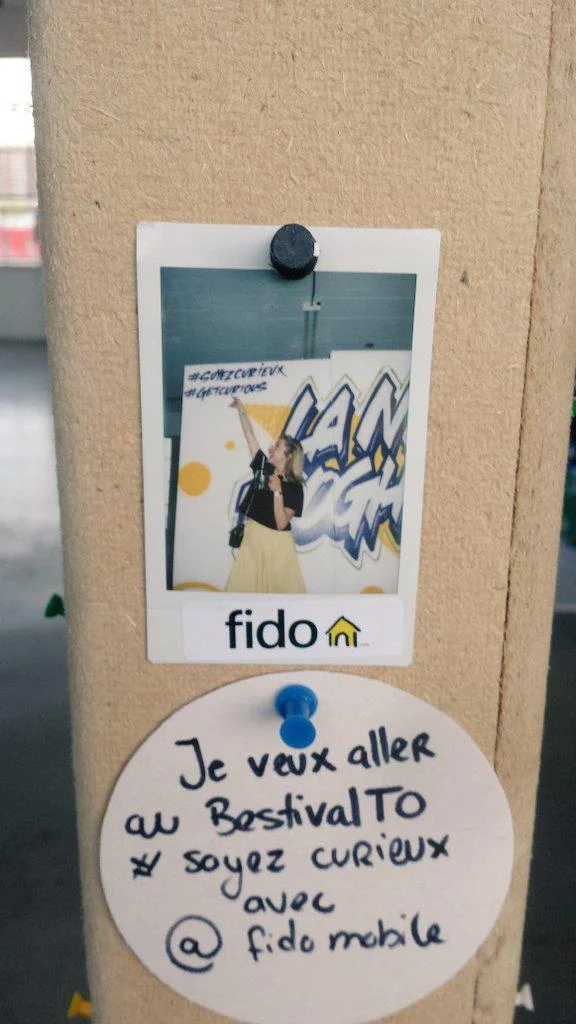 #SOYEZCURIEUX
#GETCURIOUS
fido
Je veux aller
au BestivalTO
# soyez curieux
avec
@ fido mobile